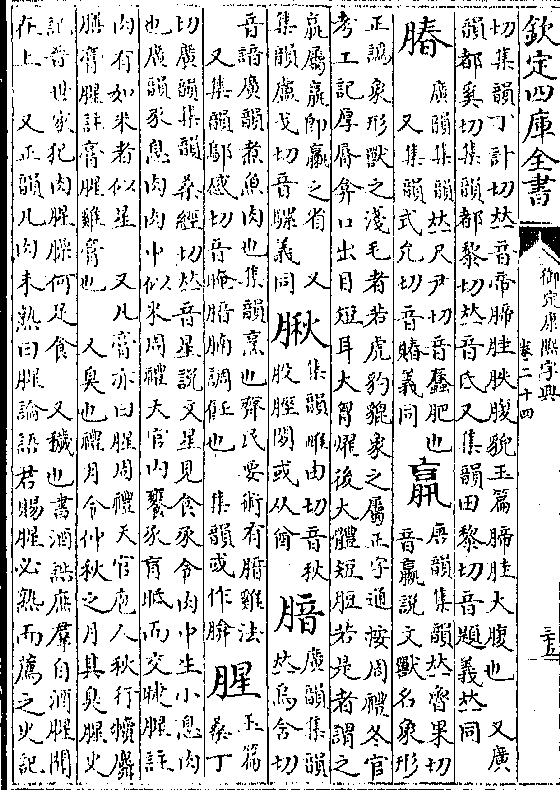 欽定四庫全書
御定康熙字典
卷二十四
三五
切集韻丁計切𠀤音帝腣胿胅腹貌玉篇腣胿大腹也 又廣
韻都奚切集韻都黎切𠀤音氐又集韻田黎切音題義𠀤同
䐏 廣韻集韻𠀤尺尹切音蠢肥也
又集韻式允切音賰義同
𦝠 唐韻集韻𠀤魯果切
音臝說文獸名象形
正譌象形獸之淺毛者若虎豹貔象之屬正字通按周禮冬官
考工記厚脣弇口出目短耳大胷燿後大體短脰若是者謂之
臝屬𦝠卽臝之省 又
集韻盧戈切音騾義同
䐐 集韻雌由切音秋
股脛閒或从酋
腤 廣韻集韻
𠀤烏含切
音諳廣韻煮魚肉也集韻烹也齊民要術有腤雞法
又集韻鄔感切音晻腤腩調飪也 集韻或作䐶
腥 玉篇
桑丁
切廣韻集韻 桑經切𠀤音星說文星見食豕令肉中生小息肉
也廣韻豕息肉肉中似米周禮天官內饔豕盲眡而交睫腥註
肉有如米者似星 又凡膏亦曰腥周禮天官庖人秋行犢麛
膳膏腥註膏腥雞膏也 又臭也禮月令仲秋之月其臭腥史
記晉世家犯肉腥臊何足食 又穢也書酒誥庶羣自酒腥聞
在上 又正韻凡肉未熟曰腥論語君賜腥必熟而薦之史記